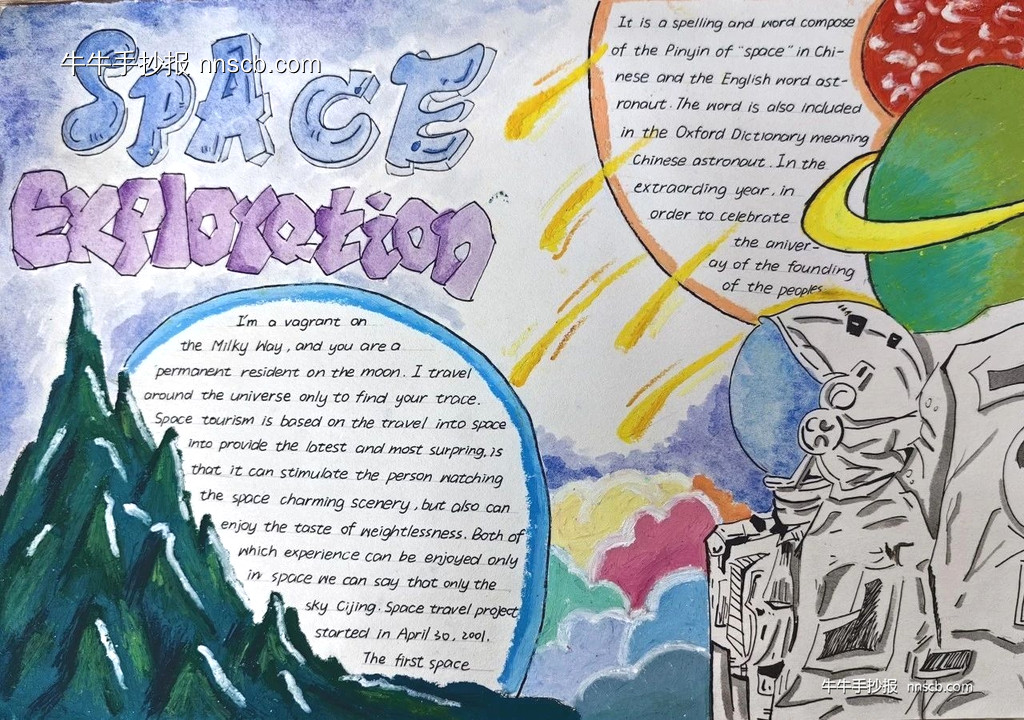 牛牛手抄报 nnscb.com
SPACE
Exploration
It is a spelling and word compose
of the Pinyin of "space" in Chi-
nese and the English word ast-
ronaut. The word is also included
in the Oxford Dictionary meaning
Chinese astronaut. In the
extraording year, in
order to celebrate
the aniver-
ay of the founding
of the peoples
I'm a vagrant on
the Milky Way, and you are a
permanent resident on the moon. I travel
around the universe only to find your trace.
Space tourism is based on the travel into space
into provide the latest and most surpring, is
that it can stimulate the person watching
the space charming scenery, but also can
enjoy the taste of weightlessness. Both of
which experience can be enjoyed only
in space we can say that only the
sky Cijing. Space travel project
started in April 30, 2001.
The first space
牛牛手抄报 nnscb.com